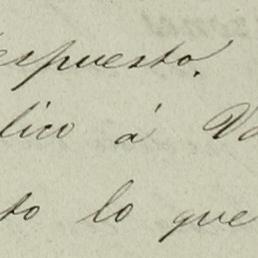 espuesto.
lico á V
to lo que